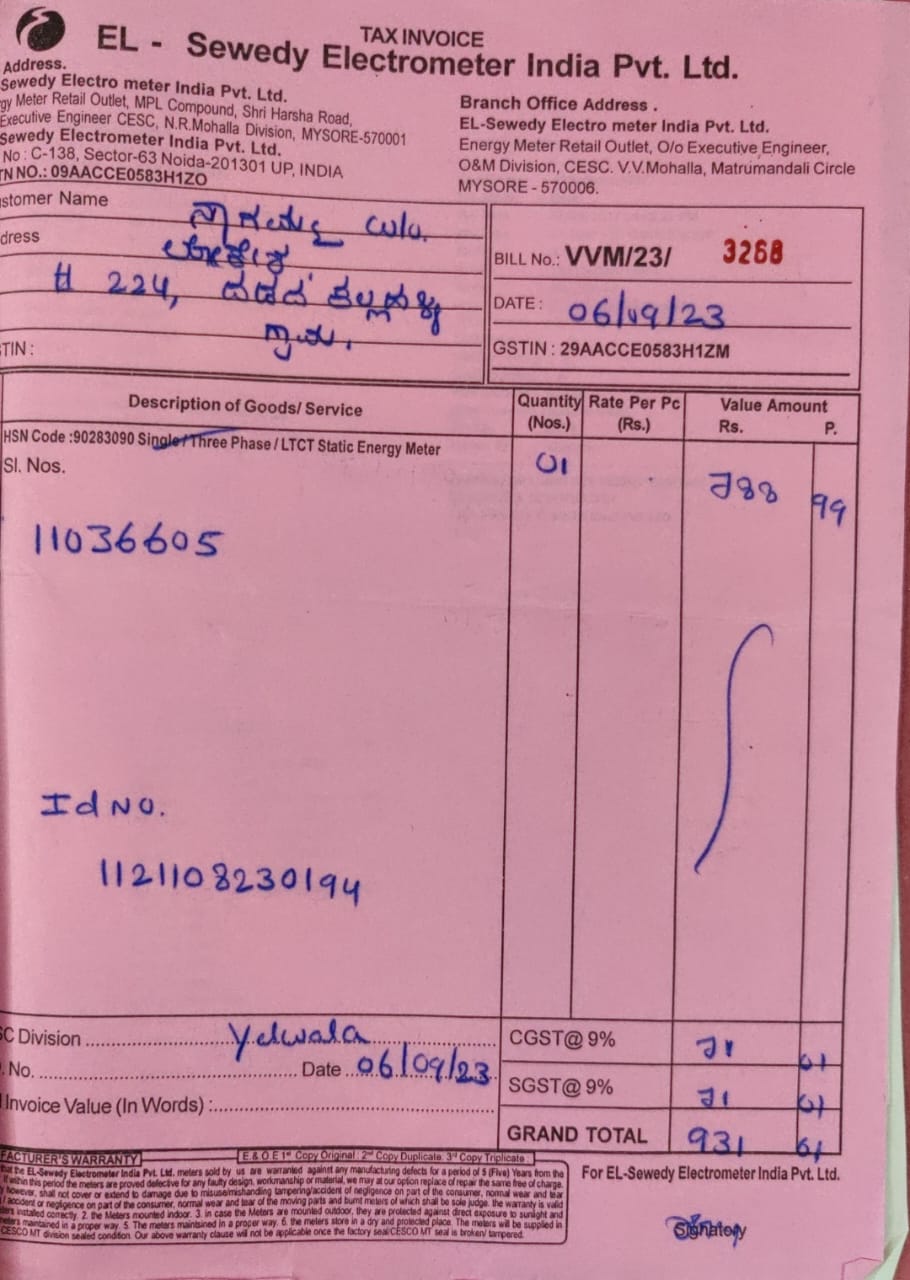 TAX INVOICE
EL - Sewedy Electrometer India Pvt. Ltd.
Address.
Sewedy Electro meter India Pvt. Ltd.
gy Meter Retail Outlet, MPL Compound, Shri Harsha Road,
Executive Engineer CESC, N.R.Mohalla Division, MYSORE-570001
Sewedy Electrometer India Pvt. Ltd.
No : C-138, Sector-63 Noida-201301 UP, INDIA
TN NO.: 09AACCE0583H1ZO
Branch Office Address .
EL-Sewedy Electro meter India Pvt. Ltd.
Energy Meter Retail Outlet, O/o Executive Engineer,
O&M Division, CESC. V.V.Mohalla, Matrumandali Circle
MYSORE - 570006.
stomer Name
dress
# 224,
TIN :
BILL No.: VVM/23/ 3268
DATE : 06/09/23
GSTIN : 29AACCE0583H1ZM
Description of Goods/ Service Quantity (Nos.) Rate Per Pc (Rs.) Value Amount Rs. P.
HSN Code :90283090 Single/Three Phase / LTCT Static Energy Meter
Sl. Nos. 01 788 99
11036605
Id No.
1121108230194
SC Division Yelwala
. No. Date 06/09/23
Invoice Value (In Words) :
CGST@ 9% 71 01
SGST@ 9% 71 01
GRAND TOTAL 931 61
FACTURER'S WARRANTY E & O E 1st Copy Original : 2nd Copy Duplicate. 3rd Copy Triplicate :
that the EL-Sewedy Electrometer India Pvt. Ltd. meters sold by us are warranted against any manufacturing defects for a period of 5 (Five) Years from the
If within this period the meters are proved defective for any faulty design, workmanship or material, we may at our option replace of repair the same free of charge.
however, shall not cover or extend to damage due to misuse/mishandling tampering/accident of negligence on part of the consumer, normal wear and tear
accident or negligence on part of the consumer, normal wear and tear of the moving parts and burnt meters of which shall be sole judge. the warranty is valid
installed correctly. 2. the Meters mounted indoor. 3. in case the Meters are mounted outdoor, they are protected against direct exposure to sunlight and
maintained in a proper way. 5. The meters maintained in a proper way. 6. the meters store in a dry and protected place. The meters will be supplied in
CESCO MT division sealed condition. Our above warranty clause will not be applicable once the factory seal/CESCO MT seal is broken/ tampered.
For EL-Sewedy Electrometer India Pvt. Ltd.
Signatory